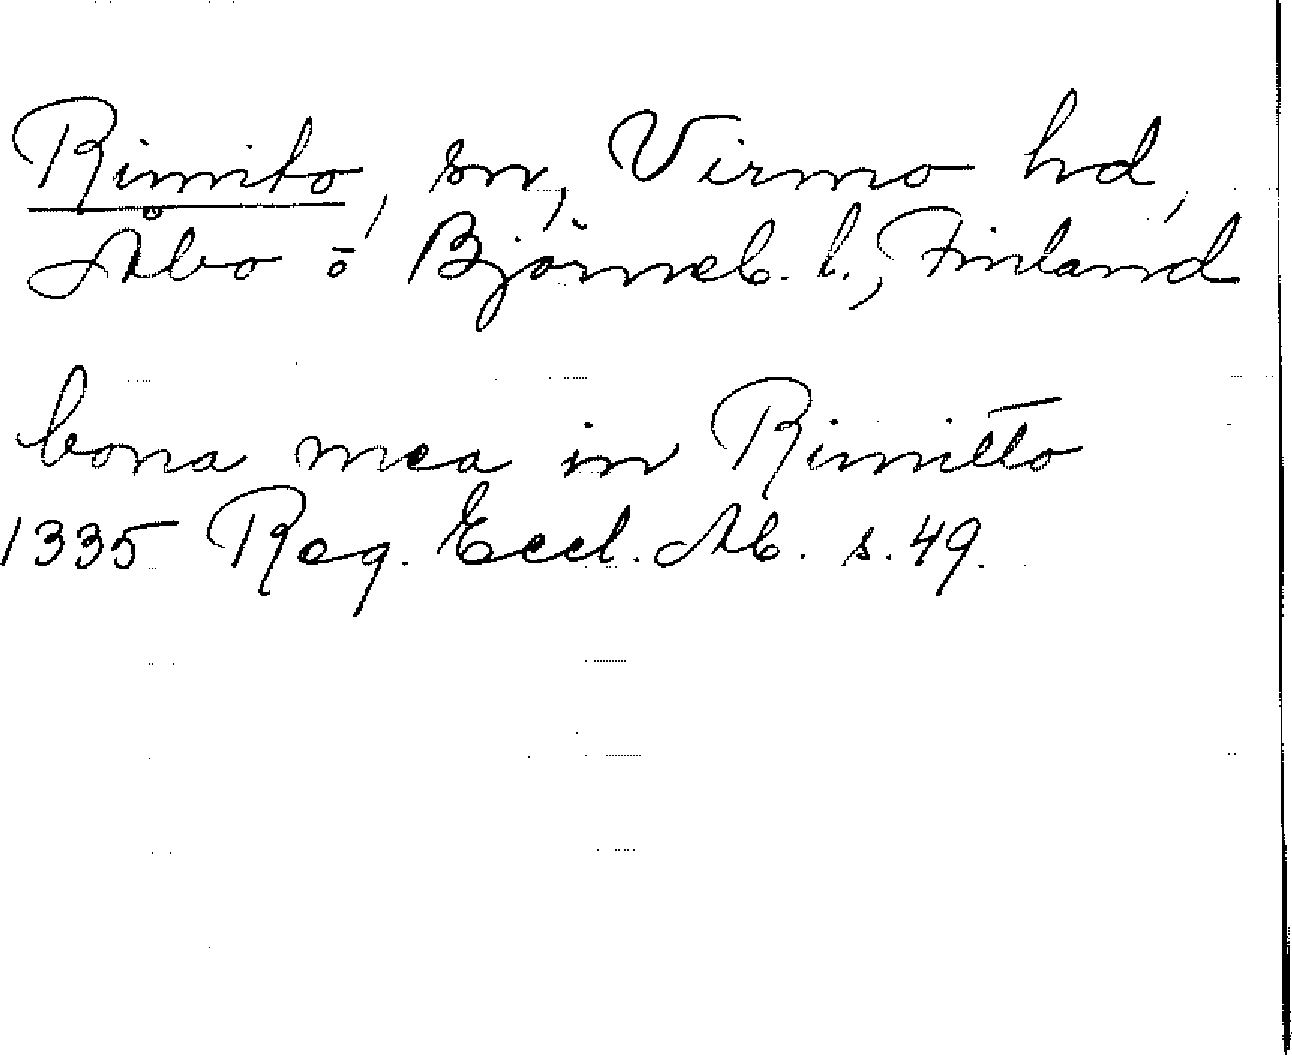 Rimito, sn, Virmo hd,
Åbo ō Björneb. l., Finland
bona mea in Rimitto
1335 Reg. Eccl. Ab. s. 49.